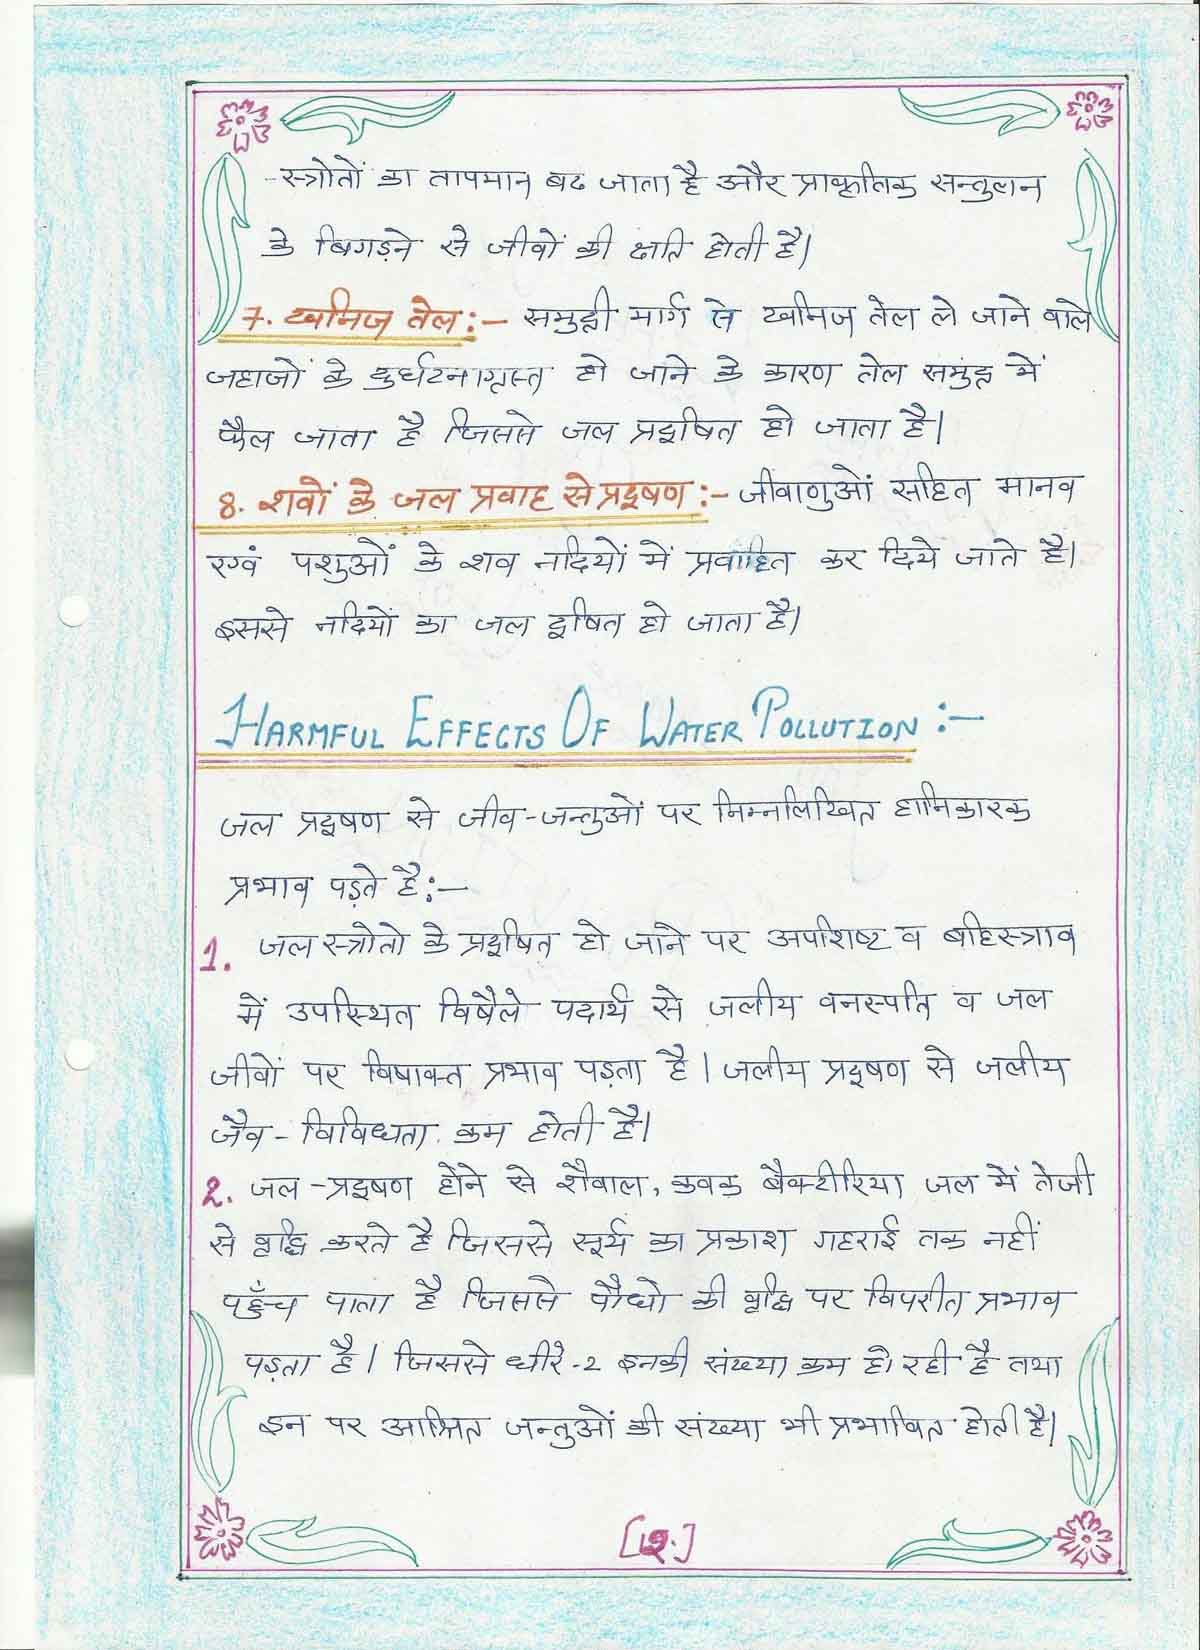 स्त्रोतों का तापमान बढ जाता है और प्राकृतिक सन्तुलन
के बिगड़ने से जीवों की क्षति होती है।
7. खनिज तेल:- समुद्री मार्ग से खनिज तेल ले जाने वाले
जहाजों के दुर्घटनाग्रस्त हो जाने के कारण तेल समुंद्र में
फैल जाता है जिससे जल प्रदूषित हो जाता है।
8. शवों के जल प्रवाह से प्रदूषण:- जीवाणुओं सहित मानव
एवं पशुओं के शव नदियों में प्रवाहित कर दिये जाते है।
इससे नदियों का जल दूषित हो जाता है।
HARMFUL EFFECTS OF WATER POLLUTION :-
जल प्रदूषण से जीव-जन्तुओं पर निम्नलिखित हानिकारक
प्रभाव पड़ते है:-
1. जल स्त्रोतो के प्रदूषित हो जाने पर अपशिष्ट व बहिस्त्राव
में उपस्थित विषैले पदार्थ से जलीय वनस्पति व जल
जीवों पर विषाक्त प्रभाव पड़ता है। जलीय प्रदूषण से जलीय
जैव-विविधता कम होती है।
2. जल-प्रदूषण होने से शैवाल, कवक बैक्टीरिया जल में तेजी
से वृद्धि करते है जिससे सूर्य का प्रकाश गहराई तक नहीं
पहुँच पाता है जिससे पौधो की वृद्धि पर विपरीत प्रभाव
पड़ता है। जिससे धीरे-2 इनकी संख्या कम हो रही है तथा
इन पर आश्रित जन्तुओं की संख्या भी प्रभावित होती है।